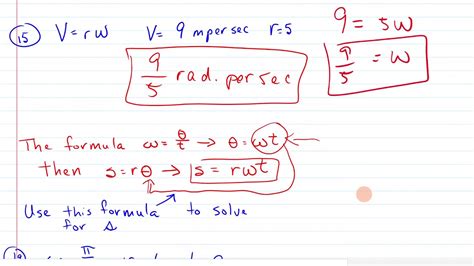 15 V = rω V = 9 m per sec r = 5
9 = 5ω
9/5 = ω
9/5 rad. per sec
The formula ω = θ/t → θ = ωt ←
then s = rθ → s = rωt
Use this formula to solve
for s
π